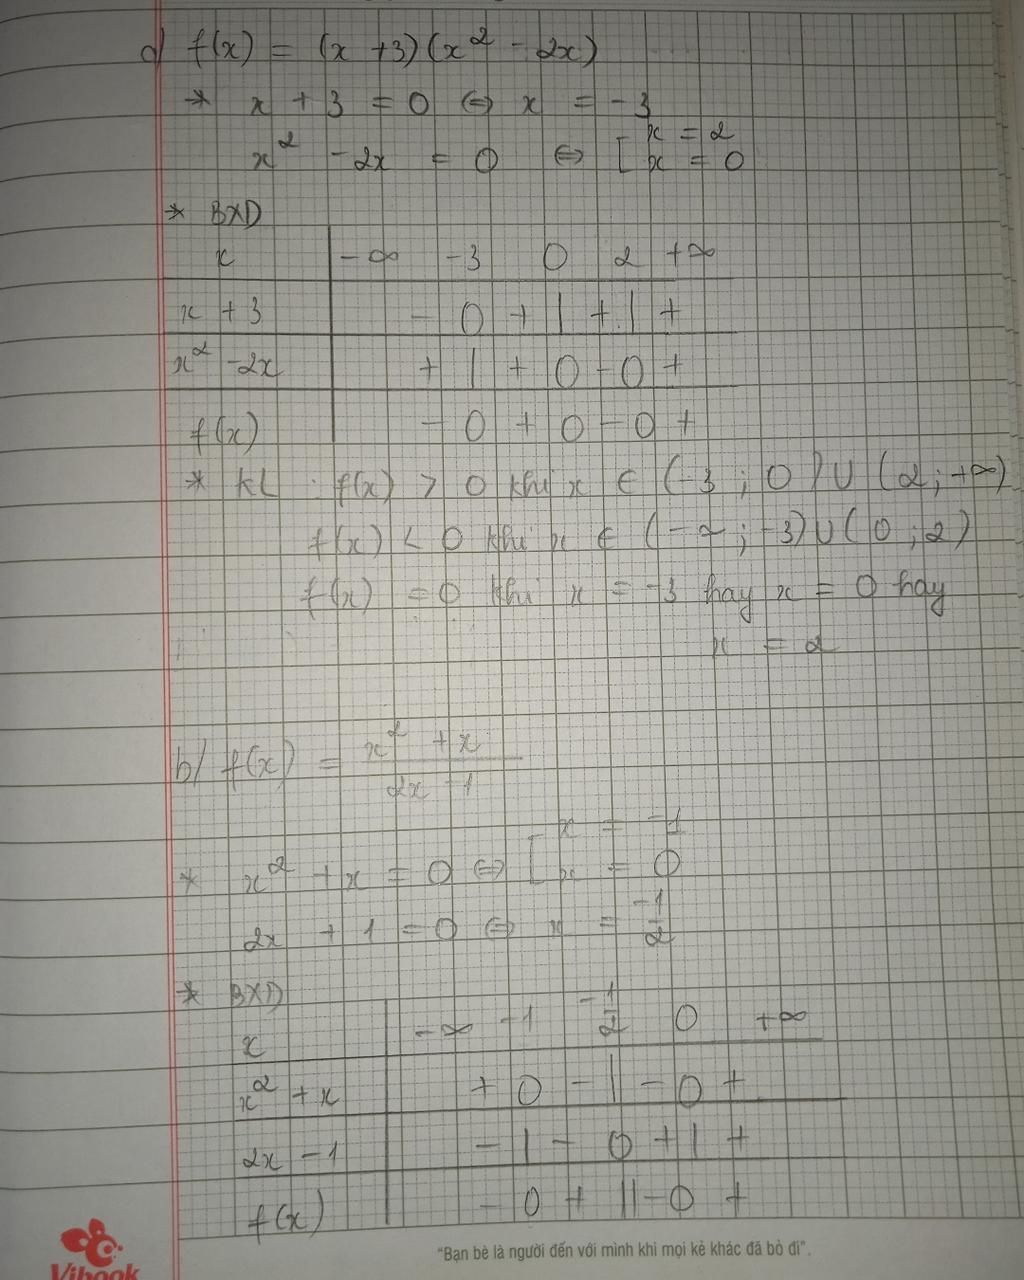 a) f(x) = (x + 3)(x² - 2x)
* x + 3 = 0 ⇔ x = -3
x² - 2x = 0 ⇔ [ x = 2
x = 0
* BXD
x | -∞ -3 0 2 +∞
x + 3 | - 0 + | + | +
x² - 2x | + | + 0 - 0 +
f(x) | - 0 + 0 - 0 +
* KL : f(x) > 0 khi x ∈ (-3 ; 0) ∪ (2 ; +∞)
f(x) < 0 khi x ∈ (-∞ ; -3) ∪ (0 ; 2)
f(x) = 0 khi x = -3 hay x = 0 hay
x = 2
b) f(x) = (x² + x)/(2x - 1)
* x² + x = 0 ⇔ [ x = -1
x = 0
2x + 1 = 0 ⇔ x = -1/2
* BXD
x | -∞ -1 -1/2 0 +∞
x² + x | + 0 - | - 0 +
2x - 1 | - | - 0 + | +
f(x) | - 0 + || - 0 +
Vibook
"Bạn bè là người đến với mình khi mọi kẻ khác đã bỏ đi".